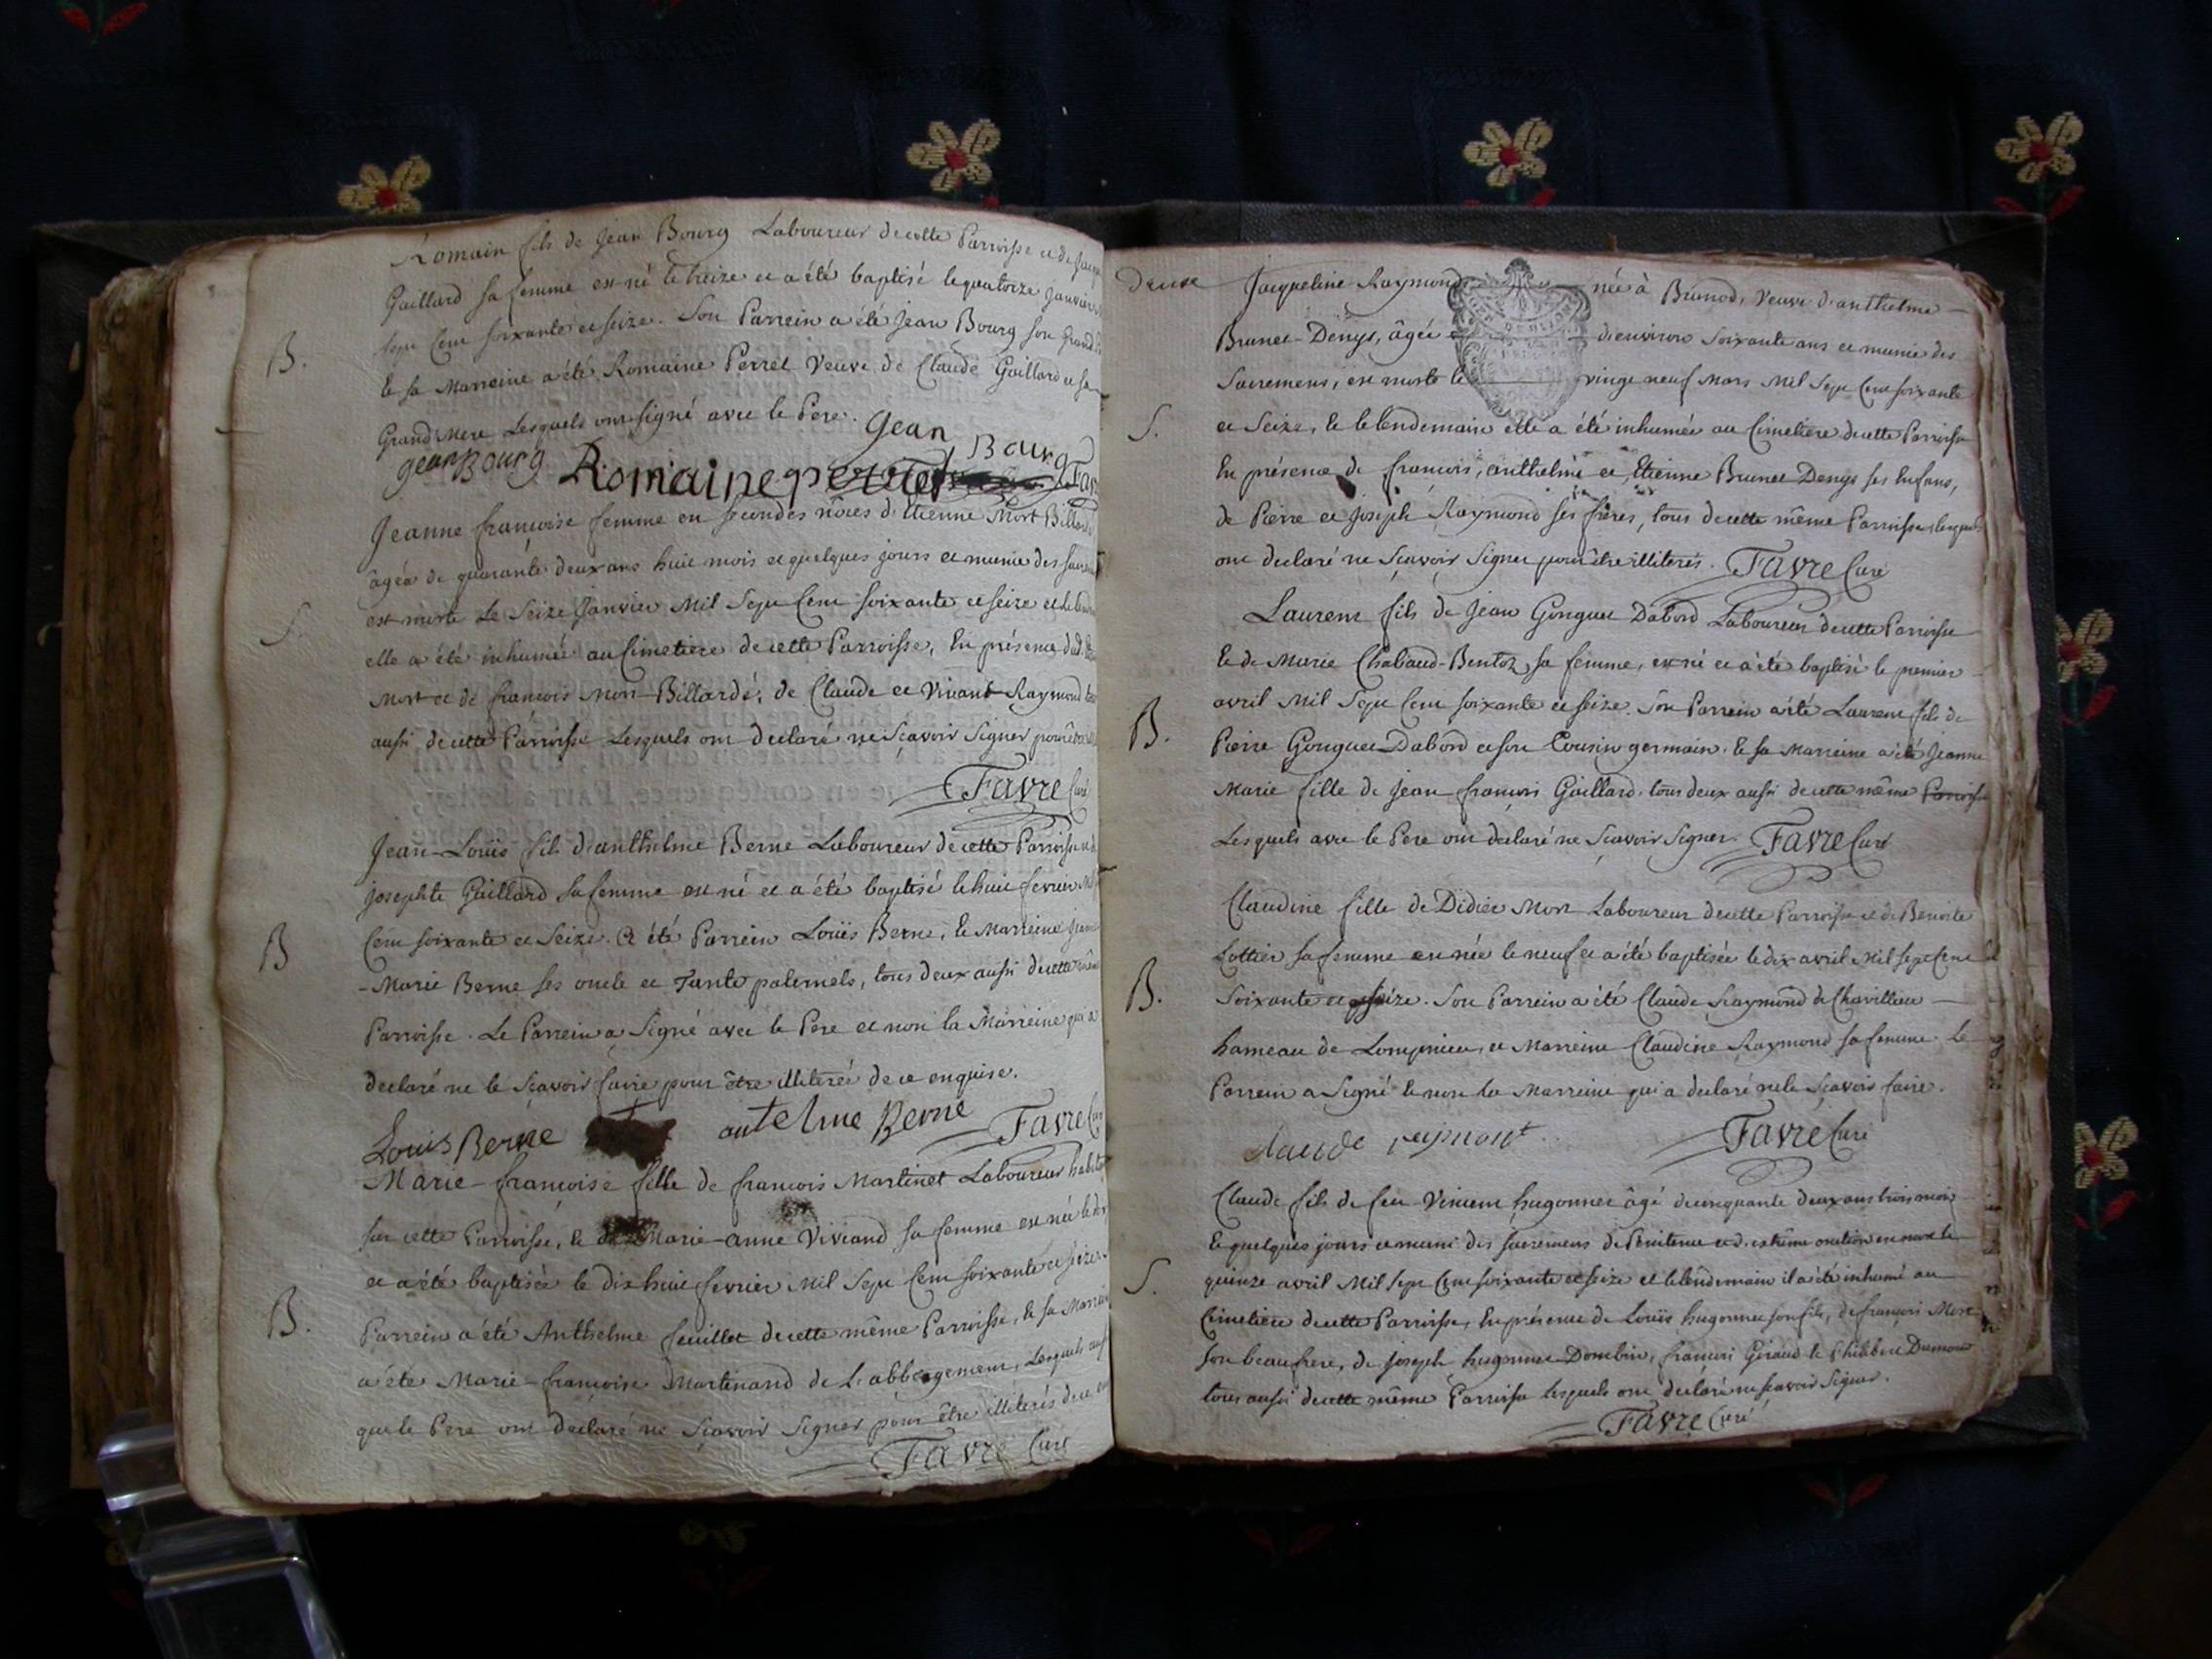 Romain fils de Jean Bourg Laboureur de cette Parroisse et de
Gaillard sa femme est né le treize et a été baptisé le quatorze Janvier
sept Cent soixante et seize. Son Parrein a été Jean Bourg son grand
B.
& sa Marreine a été Romaine Perret Veuve de Claude Gaillard et sa
Grand-Mere Lesquels ont signé avec le Pere.
Jean Bourg
jean Bourg Romaine perret
Jeanne françoise femme en secondes nôces d'Etienne Mort Billard
âgée de quarante deux ans huit mois et quelques jours et munie des
est morte Le Seize Janvier Mil Sept Cent soixante et seize et
S.
elle a été inhumée au Cimetiere de cette Parroisse, En présence dud.
Mort et de françois Mort-Billardé, de Claude et Vivant Raymond
aussi de cette Parroisse Lesquels ont declaré ne Sçavoir Signer pour
Favre Curé
Jean-Loüis fils d'anthelme Berne Laboureur de cette Parroisse
josephte Gaillard sa femme est né et a été baptisé le huit fevrier
B
Cent soixante et Seize. A été Parrein Loüis Berne, & Marreine
-Marie Berne ses oncle et Tante paternels, tous deux aussi de cette
Parroisse. Le Parrein a Signé avec le Pere et non la Marreine qui a
declaré ne le Sçavoir faire pour être illiterée de ce enquise.
Louis Berne antelme Berne Favre
Marie-françoise fille de françois Martinet Laboureur
sur cette Parroisse, & de Marie-anne Viviand sa femme est née le
et a été baptisée le dix huit fevrier Mil Sept Cent soixante et seize.
B.
Parrein a été Anthelme feuillet de cette même Parroisse, & sa
a été Marie-françoise Martinand de L'abbergement, Lesquels
que le Pere ont declaré ne Sçavoir Signer pour être illiterés
Favre Curé
deuxe Jacqueline Raymond née à Brénod, Veuve d'anthelme
Brunet-Denys, âgée d'environ soixante ans et munie des
Sacremens, est morte le vingt neuf Mars Mil Sept Cent soixante
S.
et Seize, & le lendemain elle a été inhumée au Cimetiere de cette Parroisse
En présence de françois, anthelme et Etienne Brunet Denys ses Enfans,
de Pierre et Joseph Raymond ses freres, tous de cette même Parroisse,
ont declaré ne Sçavoir Signer pour être illiterés. Favre Curé
Laurent fils de Jean Gonguet Dabord Laboureur de cette Parroisse
& de Marie Chabaud-Bentoz sa femme, est né et a été baptisé le premier
avril Mil Sept Cent soixante et seize. Son Parrein a été Laurent fils de
B.
Pierre Gonguet Dabord et son Cousin germain. & sa Marreine a été Jeanne
Marie fille de Jean françois Gaillard. tous deux aussi de cette même Parroisse
Lesquels avec le Pere ont declaré ne Sçavoir Signer. Favre Curé
Claudine fille de Didier Mort Laboureur de cette Parroisse et de Benoite
Lottier sa femme est née le neuf et a été baptisée le dix avril Mil sept Cent
B.
Soixante et seize. Son Parrein a été Claude Raymond de Chavillieu
hameau de Lompnieu, et Marreine Claudine Raymond sa femme. Le
Parrein a Signé & non la Marreine qui a declaré ne le Sçavoir faire.
claude reymont Favre Curé
Claude fils de feu Vincent hugonnet âgé de cinquante deux ans trois mois
& quelques jours et muni des sacremens de Penitence et d'extrême onction est mort le
S.
quinze avril Mil Sept Cent soixante et seize et le lendemain il a été inhumé au
Cimetiere de cette Parroisse, En présence de Loüis hugonnet son fils, de françois Mort
son beau frere, de joseph hugonnet-Dombin, françois Giraud & Philibert Dumont
tous aussi de cette même Parroisse Lesquels ont declaré ne Sçavoir Signer.
Favre Curé